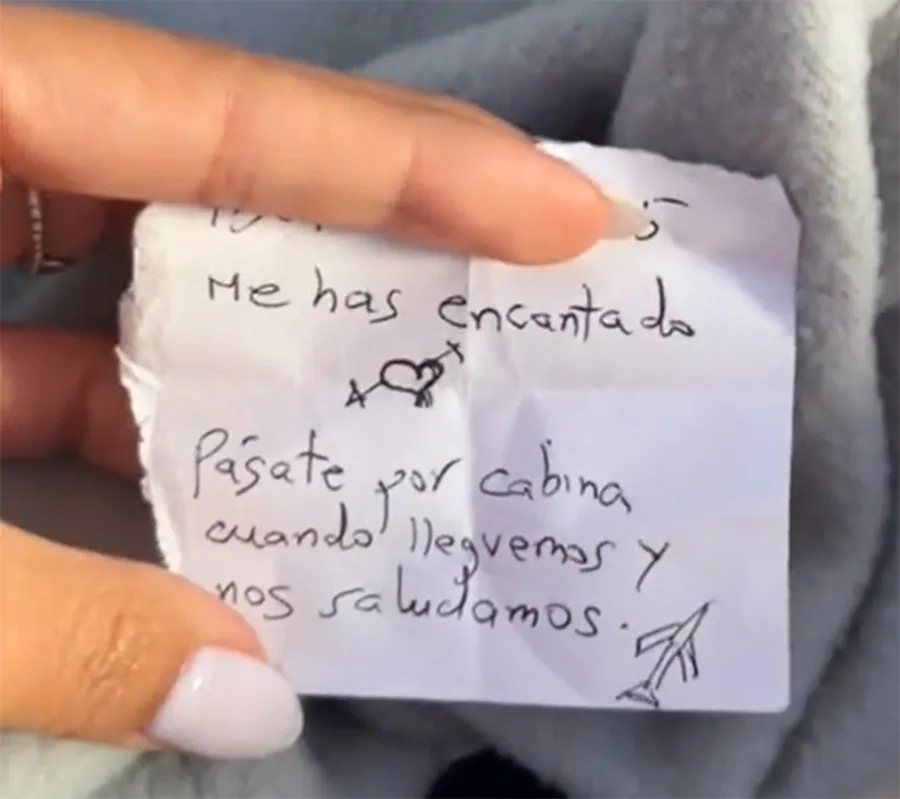 Me has encantado
Pásate por cabina
cuando lleguemos y
nos saludamos.